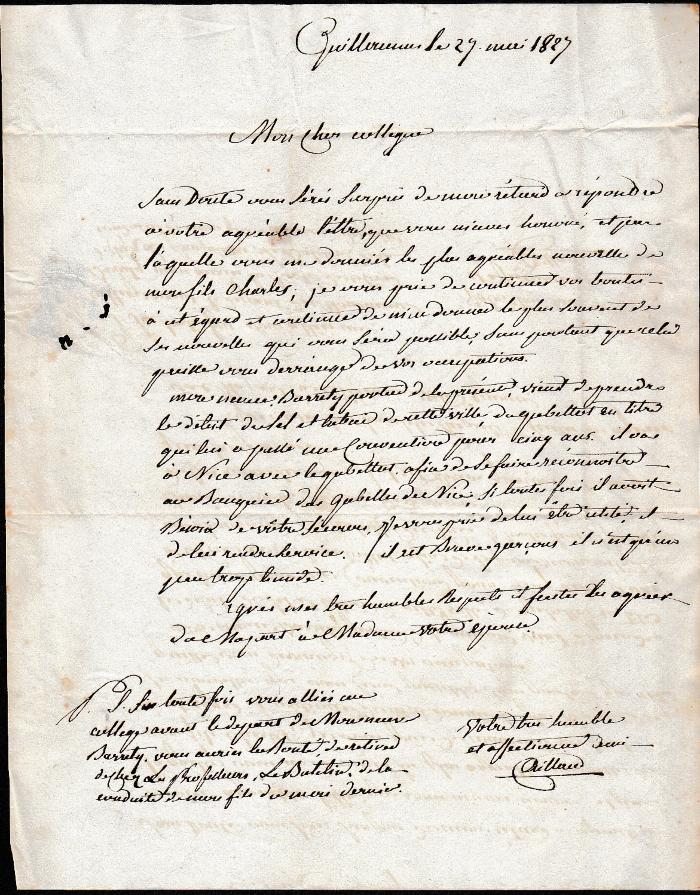 Guillaumes le 27. mai 1827
Mon cher collegue
Sans Doute vous serés surpris de mon retard a répondre
a votre agréable lettre, que vous m'aves honoré, et par
laquelle vous me donniés les plus agréables nouvelle de
mon fils Charles; je vous prie de continuer vos bontés
à cet égard et continuer de m'en donner le plus souvent de
ses nouvelles qui vous sera possible, sans portant que cela
puisse vous derrenger de vos occupations.
mon neveu Barrety porteur de la présent, vient de prendre
le débit du sel et tabac de cette ville du gabellot en titre
qui lui a passé une Convention pour cinq ans. il va
à Nice avec le gabellot, afin de se faire réconnoitre
au Banquier des Gabelles de Nice, si toutes fois il avoit
Bésoin de vôtre sécours, Je vous prie de lui être utile, et
de lui rendre service. il est Brave garçons il n'est qu'un
peu trop timide.
Agrés mes tres humbles Respects et faites les agréer
de Ma part à Madame votre épouse.
P. S. Si toute fois vous alliés au
college avant le depart de Monsieur
Barrety, vous auriés la Bonté de retirer
de chez Le Professeur, Le Buletin de la
conduite de mon fils du mois dernier.
Votre tres humble
et affectionné ami